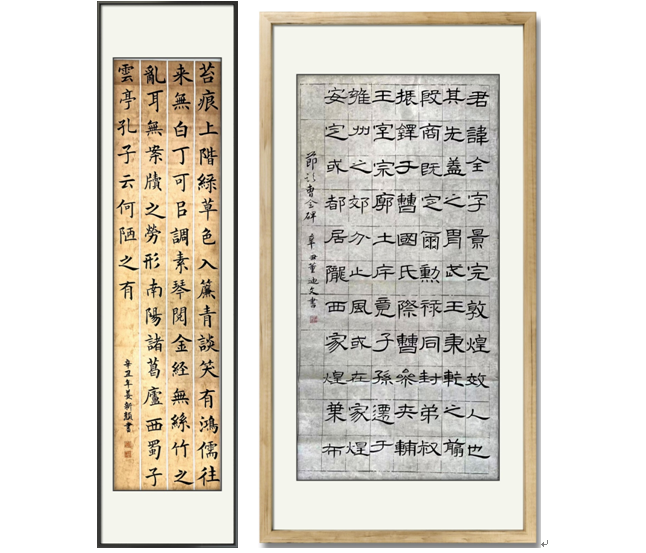 苔痕上階綠草色入簾青談笑有鴻儒往
来無白丁可㠯調素琴閱金経無絲竹之
亂耳無案牘之勞形南陽諸葛廬西蜀子
雲亭孔子云何陋之有
辛丑年姜新穎書
君諱全字景完敦煌效人也
其先蓋之胄武王秉乾之翦
殷商既定爾勳祿同封弟叔
振鐸于曹國氏際曹參夾輔
王室宗廓土庁竟子孫遷于
雍州之郊分止風或在家煌
安定或都居隴西家煌枼布
節臨曹全碑 辛丑董迪文書